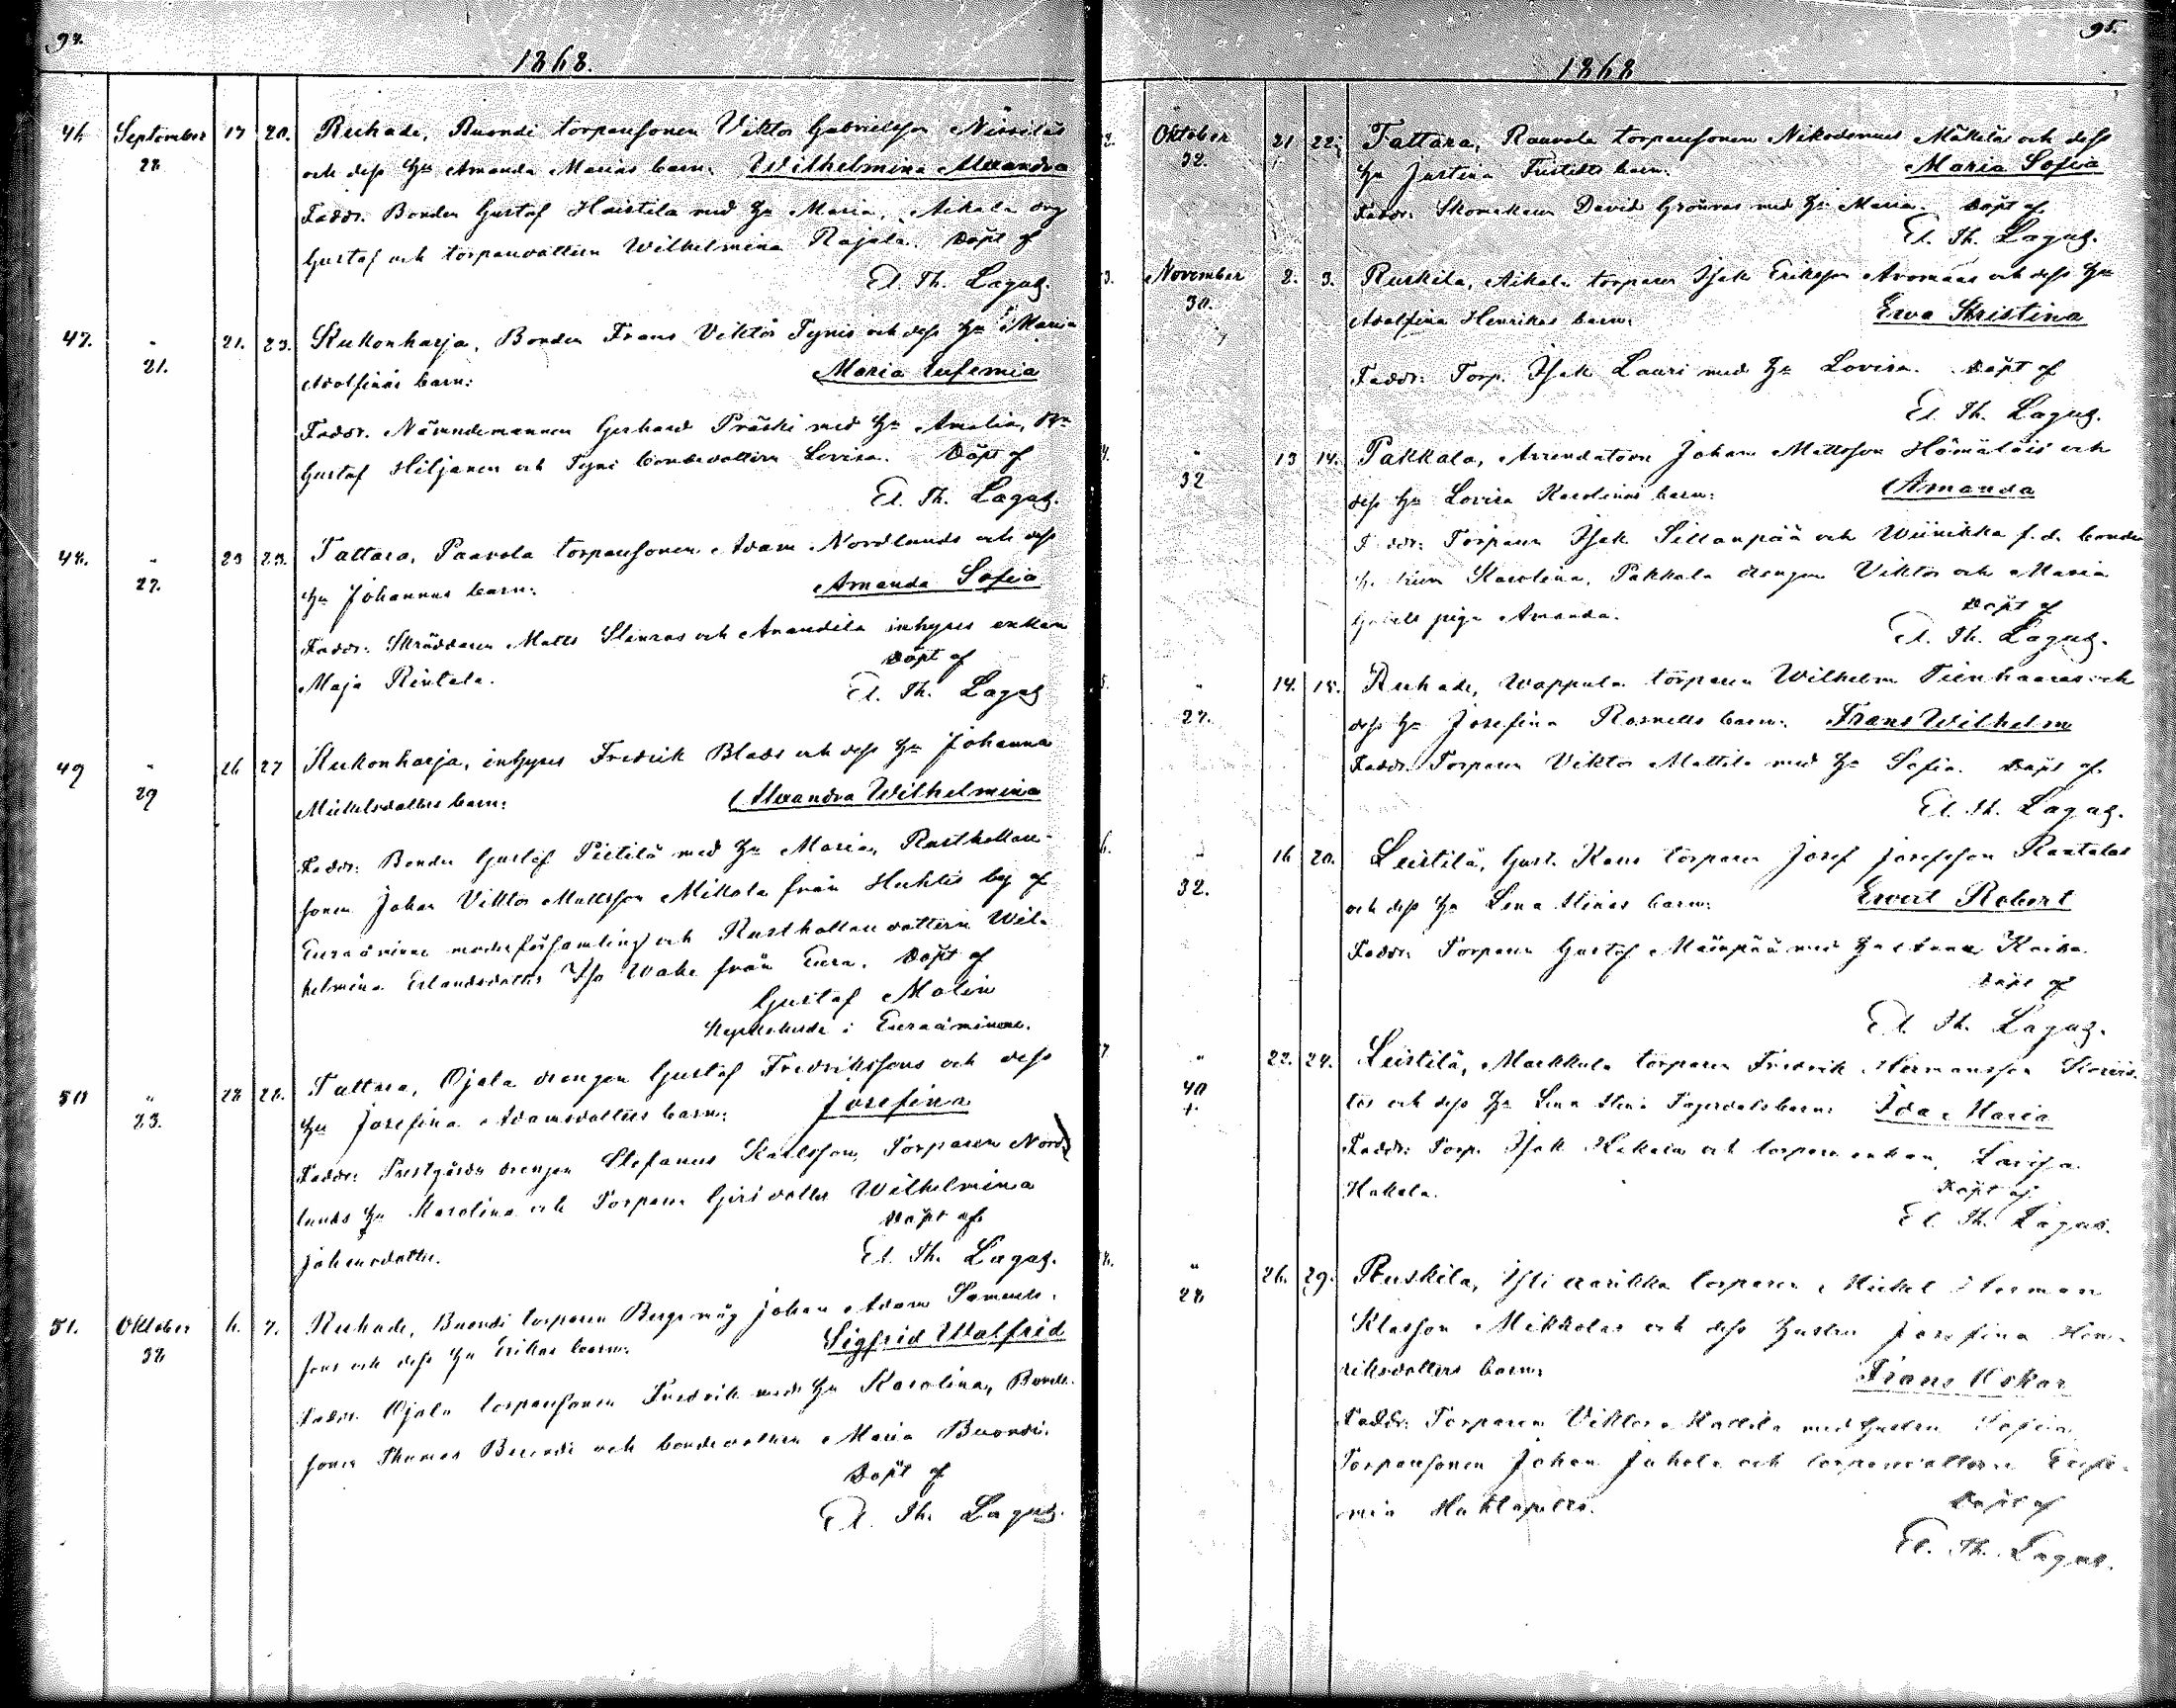 94.
1868.
46 September 17 20. Ruhade, Buondi torparesonen Viktor Gabrielsson Nissiläs
28 och dess Hu Amanda Marias barn: Wilhelmina Alexandra
Faddr. Bonden Gustaf Haistela med Hu Maria, Aikala drg
Gustaf och torparedottern Wilhelmina Rajala. Döpt af
El. Th. Lagus.
47. " 21. 23. Kukonharja, Bonden Frans Viktor Tynis och dess Hu Maria
21. Adolfinas barn: Maria Eufemia
Faddr. Nämndemannen Gerhard Präski med Hu Amalia, Bn
Gustaf Hiljanen och Tyni bondedottern Lovisa. Döpt af
El. Th. Lagus.
48. " 23 23. Tattara, Paavola torparesonen Adam Nordlunds och dess
27. Hu Johannas barn: Amanda Sofia
Faddr: Skräddaren Matts Stenros och Anundila inhyses enkan
Döpt af
Maja Rintala.
El. Th. Lagus
49 " 26 27 Kukonharja, inhyses Fredrik Blads och dess Hu Johanna
29 Mickelsdotters barn: Alexandra Wilhelmina
Faddr: Bonden Gustaf Pietilä med Hu Maria, Rusthållare-
sonen Johan Viktor Mattsson Mikola från Huhtis by af
Euraåminne moderförsamling och Rusthållaredottern Wil-
helmina Erlandsdotter Iso Wahe från Eura. Döpt af
Gustaf Molin
Kyrkoherde i Euraåminne.
50 " 28 28. Tattara, Ojala drengen Gustaf Fredrikssons och dess
23. Hu Josefina Adamsdotters barn: Josefina
Faddr: Prestgårds drengen Stefanus Karlsson, Torparen Nord-
lunds Hu Karolina och Torpare dotter Wilhelmina
Döpt af
Johansdotter.
El. Th. Lagus.
51. Oktober 6. 7. Ruhade, Buondi torparen Bergs måg Johan Adam Samuels-
38 sons och dess Hu Erikas barn: Sigfrid Walfrid
Faddr. Ojala torparesonen Fredrik med Hu Karolina, Bonde-
sonen Thomas Buondi och bondedottern Maria Buondi.
Döpt af
El. Th. Lagus.
95.
1868
2. Oktober 21 22. Tattara, Raavola torparesonen Nikodemus Mäkeläs och dess
32. Hu Justina Fristedts barn: Maria Sofia
Faddr: Skomakaren David Grönros med Hu Maria. Döpt af
El. Th. Lagus.
3. November 2. 3. Ruskila, Aikala torparen Isak Eriksson Avomaas och dess Hu
30. Adolfina Henrikas barn: Eva Kristina
Faddr: Torp. Isak Lauri med Hu Lovisa. Döpt af
El. Th. Lagus.
4. " 13 14. Pakkala, Arrendatorn Johan Mattsson Hämäläis och
32 dess Hu Lovisa Karolinas barn: Amanda
Faddr: Torparen Isak Sillanpää och Wiinikka f.d. bonde
Karolina, Pakkala drengen Viktor och Maria
Döpt af
piga Amanda.
El. Th. Lagus.
5. " 14. 15. Ruhade, Wappula torparen Wilhelm Tienhaaras och
27. dess Hu Josefina Rosnells barn: Frans Wilhelm
Faddr. Torparen Viktor Mattila med Hu Sofia. Döpt af
El. Th. Lagus.
6. " 16 20. Leistilä, Gust. Kaus torparen Josef Josefsson Rantalas
32. och dess Hu Lena Stinas barn: Evert Robert
Faddr: Torparen Gustaf Mäenpää med Hu Anna Kaisa.
Döpt af
El. Th. Lagus.
7. " 22. 24. Leistilä, Markkula torparen Fredrik Hermansson
40 + och dess Hu Lena Stina Fagerdals barn: Ida Maria
Faddr: Torp. Isak Hakala och torpare enkan, Lovisa
Hakala. Döpt af
El. Th. Lagus.
8. " 26. 29. Ruskila, torparen Mickel Herman
28 Klasson Mikkolas och dess hustru Josefina Hen-
riksdotters barn: Frans Oskar
Faddr: Torparen Viktor Mattila med hustru Sofia,
Torparesonen Johan Juhola och torparedottern Eufe-
mia Huhtapelto. Döpt af
El. Th. Lagus.